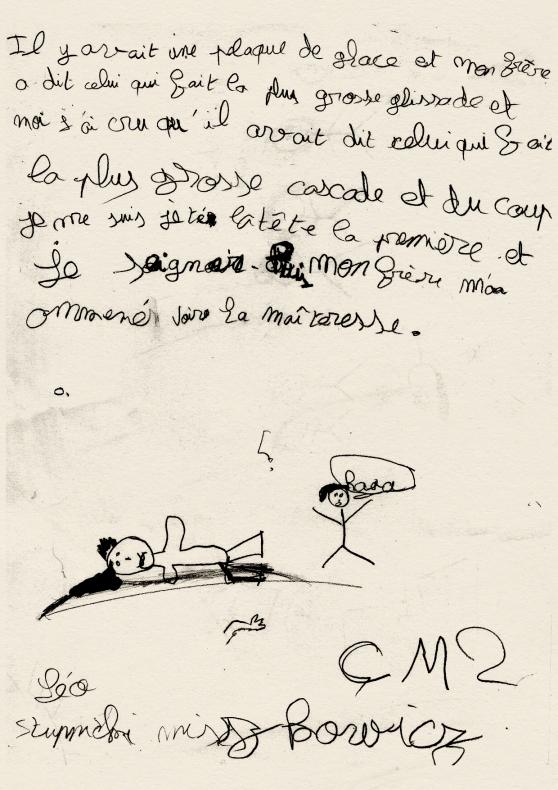 Il y avait une plaque de glace et mon frère
a dit celui qui fait la plus grosse glissade et
moi j'ai cru qu'il avait dit celui qui fait
la plus grosse cascade et du coup
je me suis jeté la tête la première et
je saignais. Puis mon frère m'a
ommené voire la maîteresse.
CM2
Léo